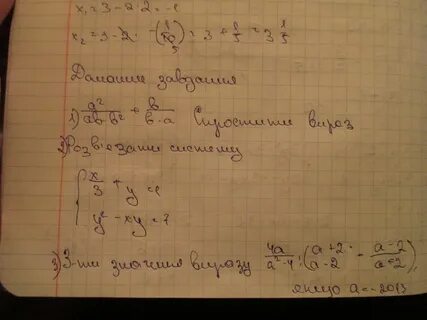 x₁ = 3 - 2 · 2 = -1
x₂ = 3 - 2 · = 3 + 1/5 = 3 1/5
Домашнє завдання
1) a²/(ab-b²) + b/(b-a) Спростити вираз
2) Розв'язати систему
x/3 + y =
y² - xy =
3) З-ти значення виразу 4a/(a²-4) : (a+2/a-2 - a-2/a+2),
якщо a = -2013